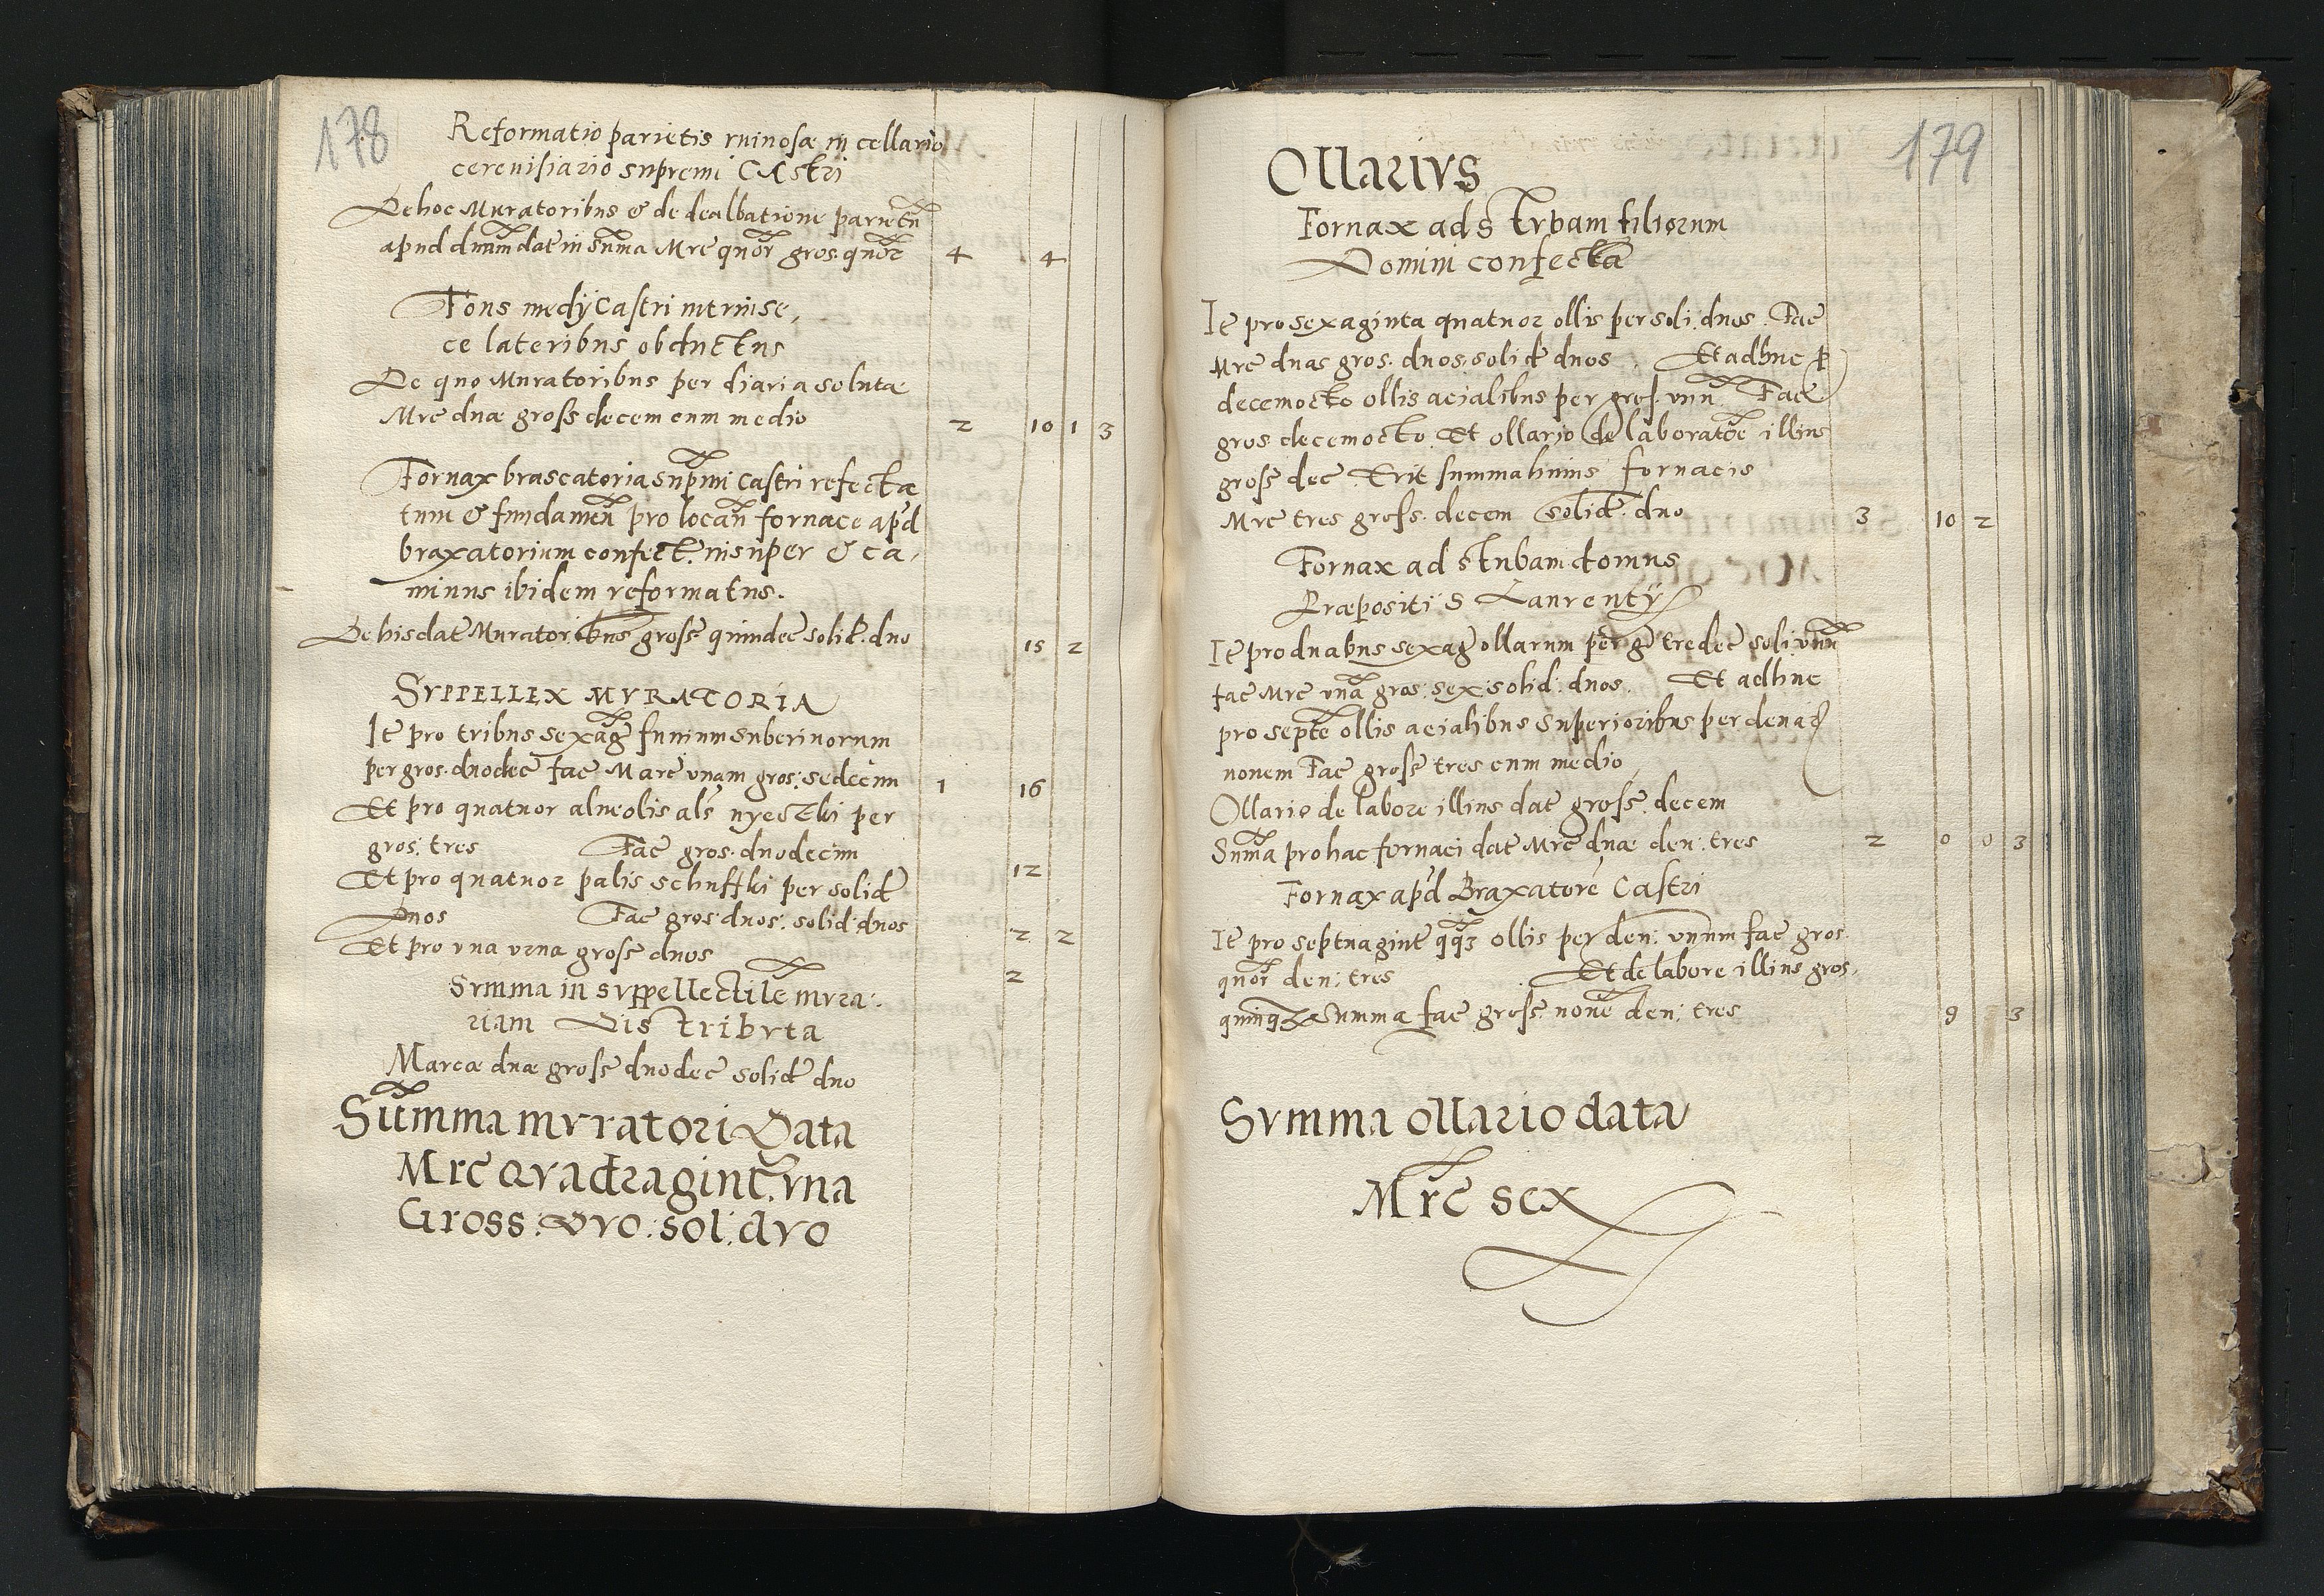 178
Reformatio parietis ruinosæ in cellario
cerevisiario supremi Castri
De hoc Muratoribus & de dealbatione parietũ
apud dnum dat in suma Mrc quor gros. quor 4 4
Fons medÿ Castri intrinse,
ce lateribus obductus
De quo Muratoribus per diaria solutæ
Mrc duæ gross decem cum medio 2 10 1 3
Fornax brascatoria supmi Castri refecta
tum & fundamen pro locan fornace apd
braxatorium confect. insuper & ca,
minus ibidem reformatus.
De his dat Muratoribus gross quindec solid. duo 15 2
SVPPELLEX MVRATORIA
It pro tribus sexag funium suberinorum
per gros. duodec fac Marc vnam gros: sedecim 1 16
Et pro quatuor alueolis als nyeczki per
gros: tres Fac gros. duodecim 12
Et pro quatuor palis schuffki per solid
duos Fac gros: duos: solid: duos 2 2
Et pro vna vrna gross duos 2
Svmma in svppellectile mvra:
riam Distribvta
Marcæ duæ gross duodec solid duo
Summa mvratori Data
Mrc Qvadragint. vna
Gross: Dvo: sol: dvo
179
Ollarivs
Fornax ad stvbam filiorum
Domini confecta
It pro sexaginta quatuor ollis per soli: duos. Fac
Mrc duas gros. duos. solid duos. Et adhuc p
decemocto ollis acialibus per gros. vnu Fac
gros decemocto. Et ollario de laboratoe illius
gross dec. Erit summa huius fornacis
Mrc tres gross. decem solid. duo 3 10 2
Fornax ad stubam domus
Præpositi S Laurentÿ
It pro duabus sexag ollarum per g tredec soli vnu
fac Mrc vna gros: sex: solid: duos. Et adhuc
pro septe ollis acialibus superioribus per denar
nonem Fac gross tres cum medio
Ollario de labore illius dat gross. decem
Suma pro hac fornaci dat Mrc duæ den: tres 2 0 0 3
Fornax apd Braxatore Castri
It pro septuagint qqz ollis per den: vnum fac gros.
quor den: tres Et de labore illius gros.
quinqz Summa fac gross. none den: tres 9 3
Svmma ollario data
Mrc sex